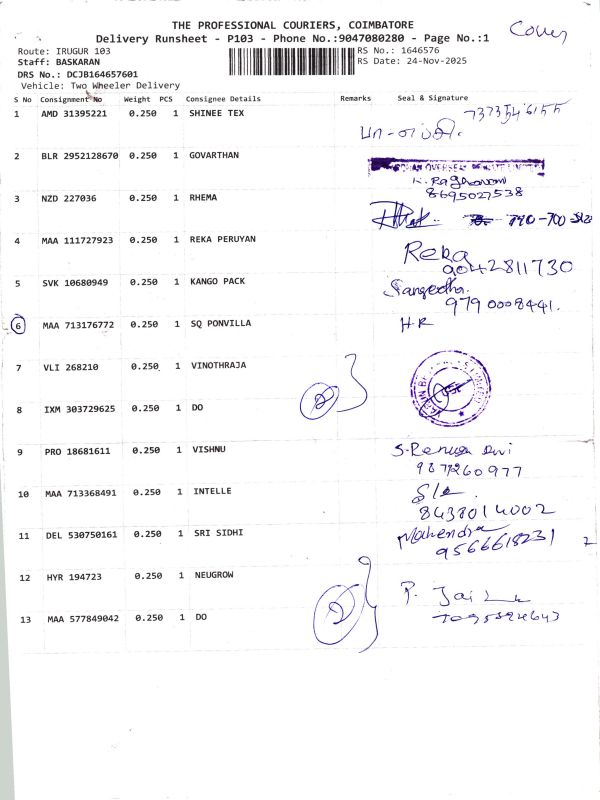 THE PROFESSIONAL COURIERS, COIMBATORE
Delivery Runsheet - P103 - Phone No.:9047080280 - Page No.:1
Cover
Route: IRUGUR 103
RS No.: 1646576
Staff: BASKARAN
RS Date: 24-Nov-2025
DRS No.: DCJB164657601
Vehicle: Two Wheeler Delivery
S No Consignment No Weight PCS Consignee Details Remarks Seal & Signature
1 AMD 31395221 0.250 1 SHINEE TEX
2 BLR 2952128670 0.250 1 GOVARTHAN
K. Raghavan
8695027538
3 NZD 227036 0.250 1 RHEMA
4 MAA 111727923 0.250 1 REKA PERUYAN Reka
9042811730
5 SVK 10680949 0.250 1 KANGO PACK Sangeetha.
9790008441.
6 MAA 713176772 0.250 1 SQ PONVILLA H.R
7 VLI 268210 0.250 1 VINOTHRAJA
8 IXM 303729625 0.250 1 DO 2
9 PRO 18681611 0.250 1 VISHNU S. Renuga Devi
10 MAA 713368491 0.250 1 INTELLE
8438014002
11 DEL 530750161 0.250 1 SRI SIDHI Mahendra
9566618231
12 HYR 194723 0.250 1 NEUGROW
P. Jai
13 MAA 577849042 0.250 1 DO 2